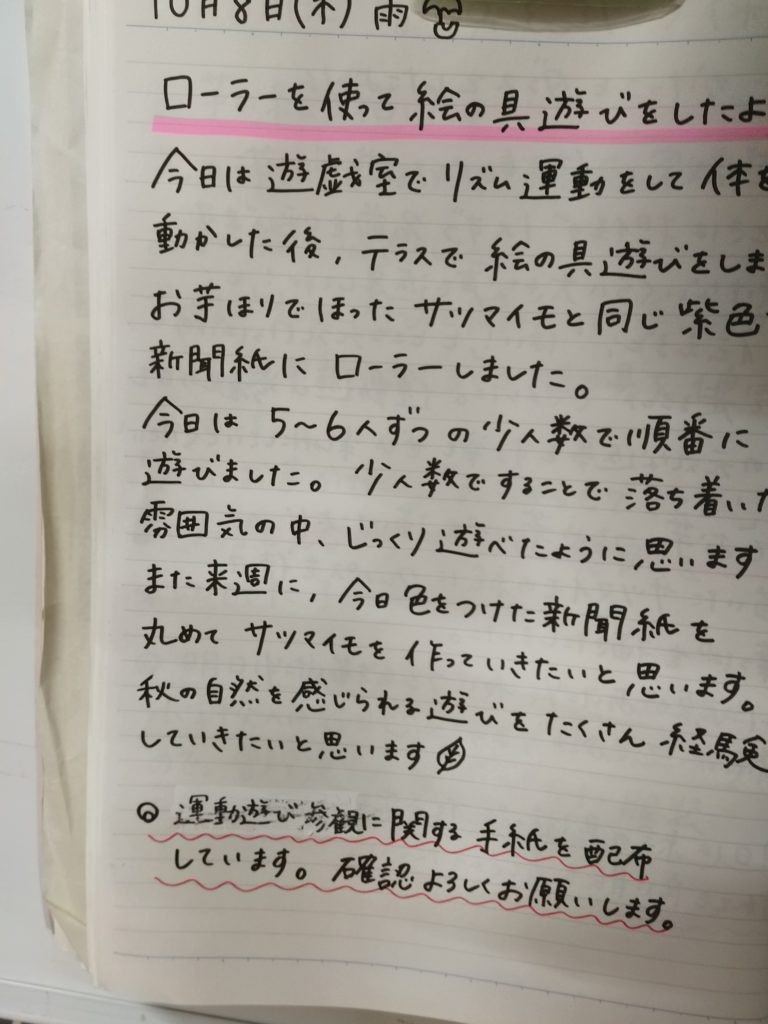 10月8日(木) 雨
ローラーを使って絵の具遊びをしたよ
今日は遊戯室でリズム運動をして体を
動かした後，テラスで絵の具遊びをしま
お芋ほりでほったサツマイモと同じ紫色
新聞紙にローラーしました。
今日は5〜6人ずつの少人数で順番に
遊びました。少人数ですることで落ち着いた
雰囲気の中、じっくり遊べたように思います
また来週に，今日色をつけた新聞紙を
丸めてサツマイモを作っていきたいと思います。
秋の自然を感じられる遊びをたくさん経験
していきたいと思います
運動遊び参観に関する手紙を配布
しています。確認よろしくお願いします。